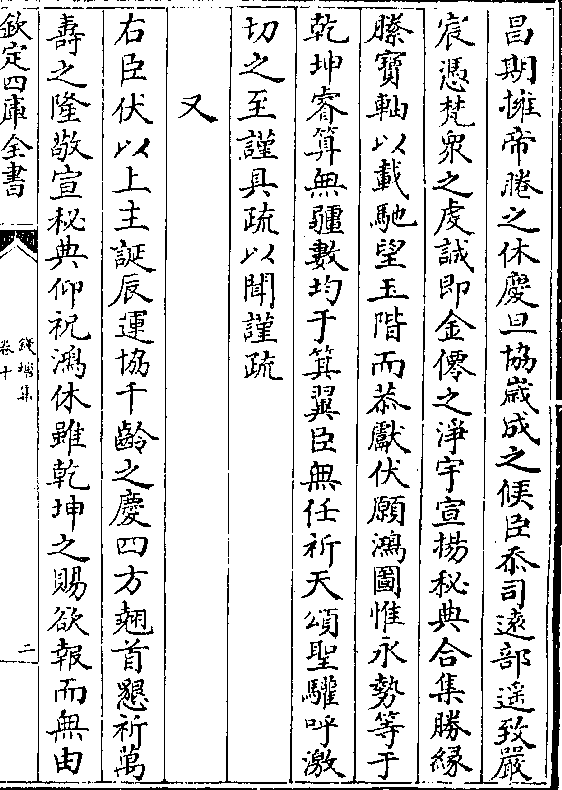 昌期擁帝牋之休慶旦協嵗成之候臣忝司逺部遥致嚴
宸憑梵衆之䖍誠即金僊之淨宇宣揚秘典合集勝緣
縢寳軸以載馳望玉階而恭獻伏願鴻圖惟永勢等于
乾坤睿算無疆數均于箕翼臣無任祈天頌聖驩呼激
切之至謹具疏以聞謹疏
又
右臣伏以上主誕辰運協千齡之慶四方翹首懇祈萬
壽之隆敬宣秘典仰祝鴻休雖乾坤之賜欲報而無由
欽定四庫全書
卷十
二